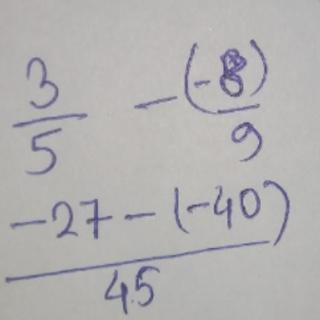 3/5 - (-8)/9
-27 - (-40)/45